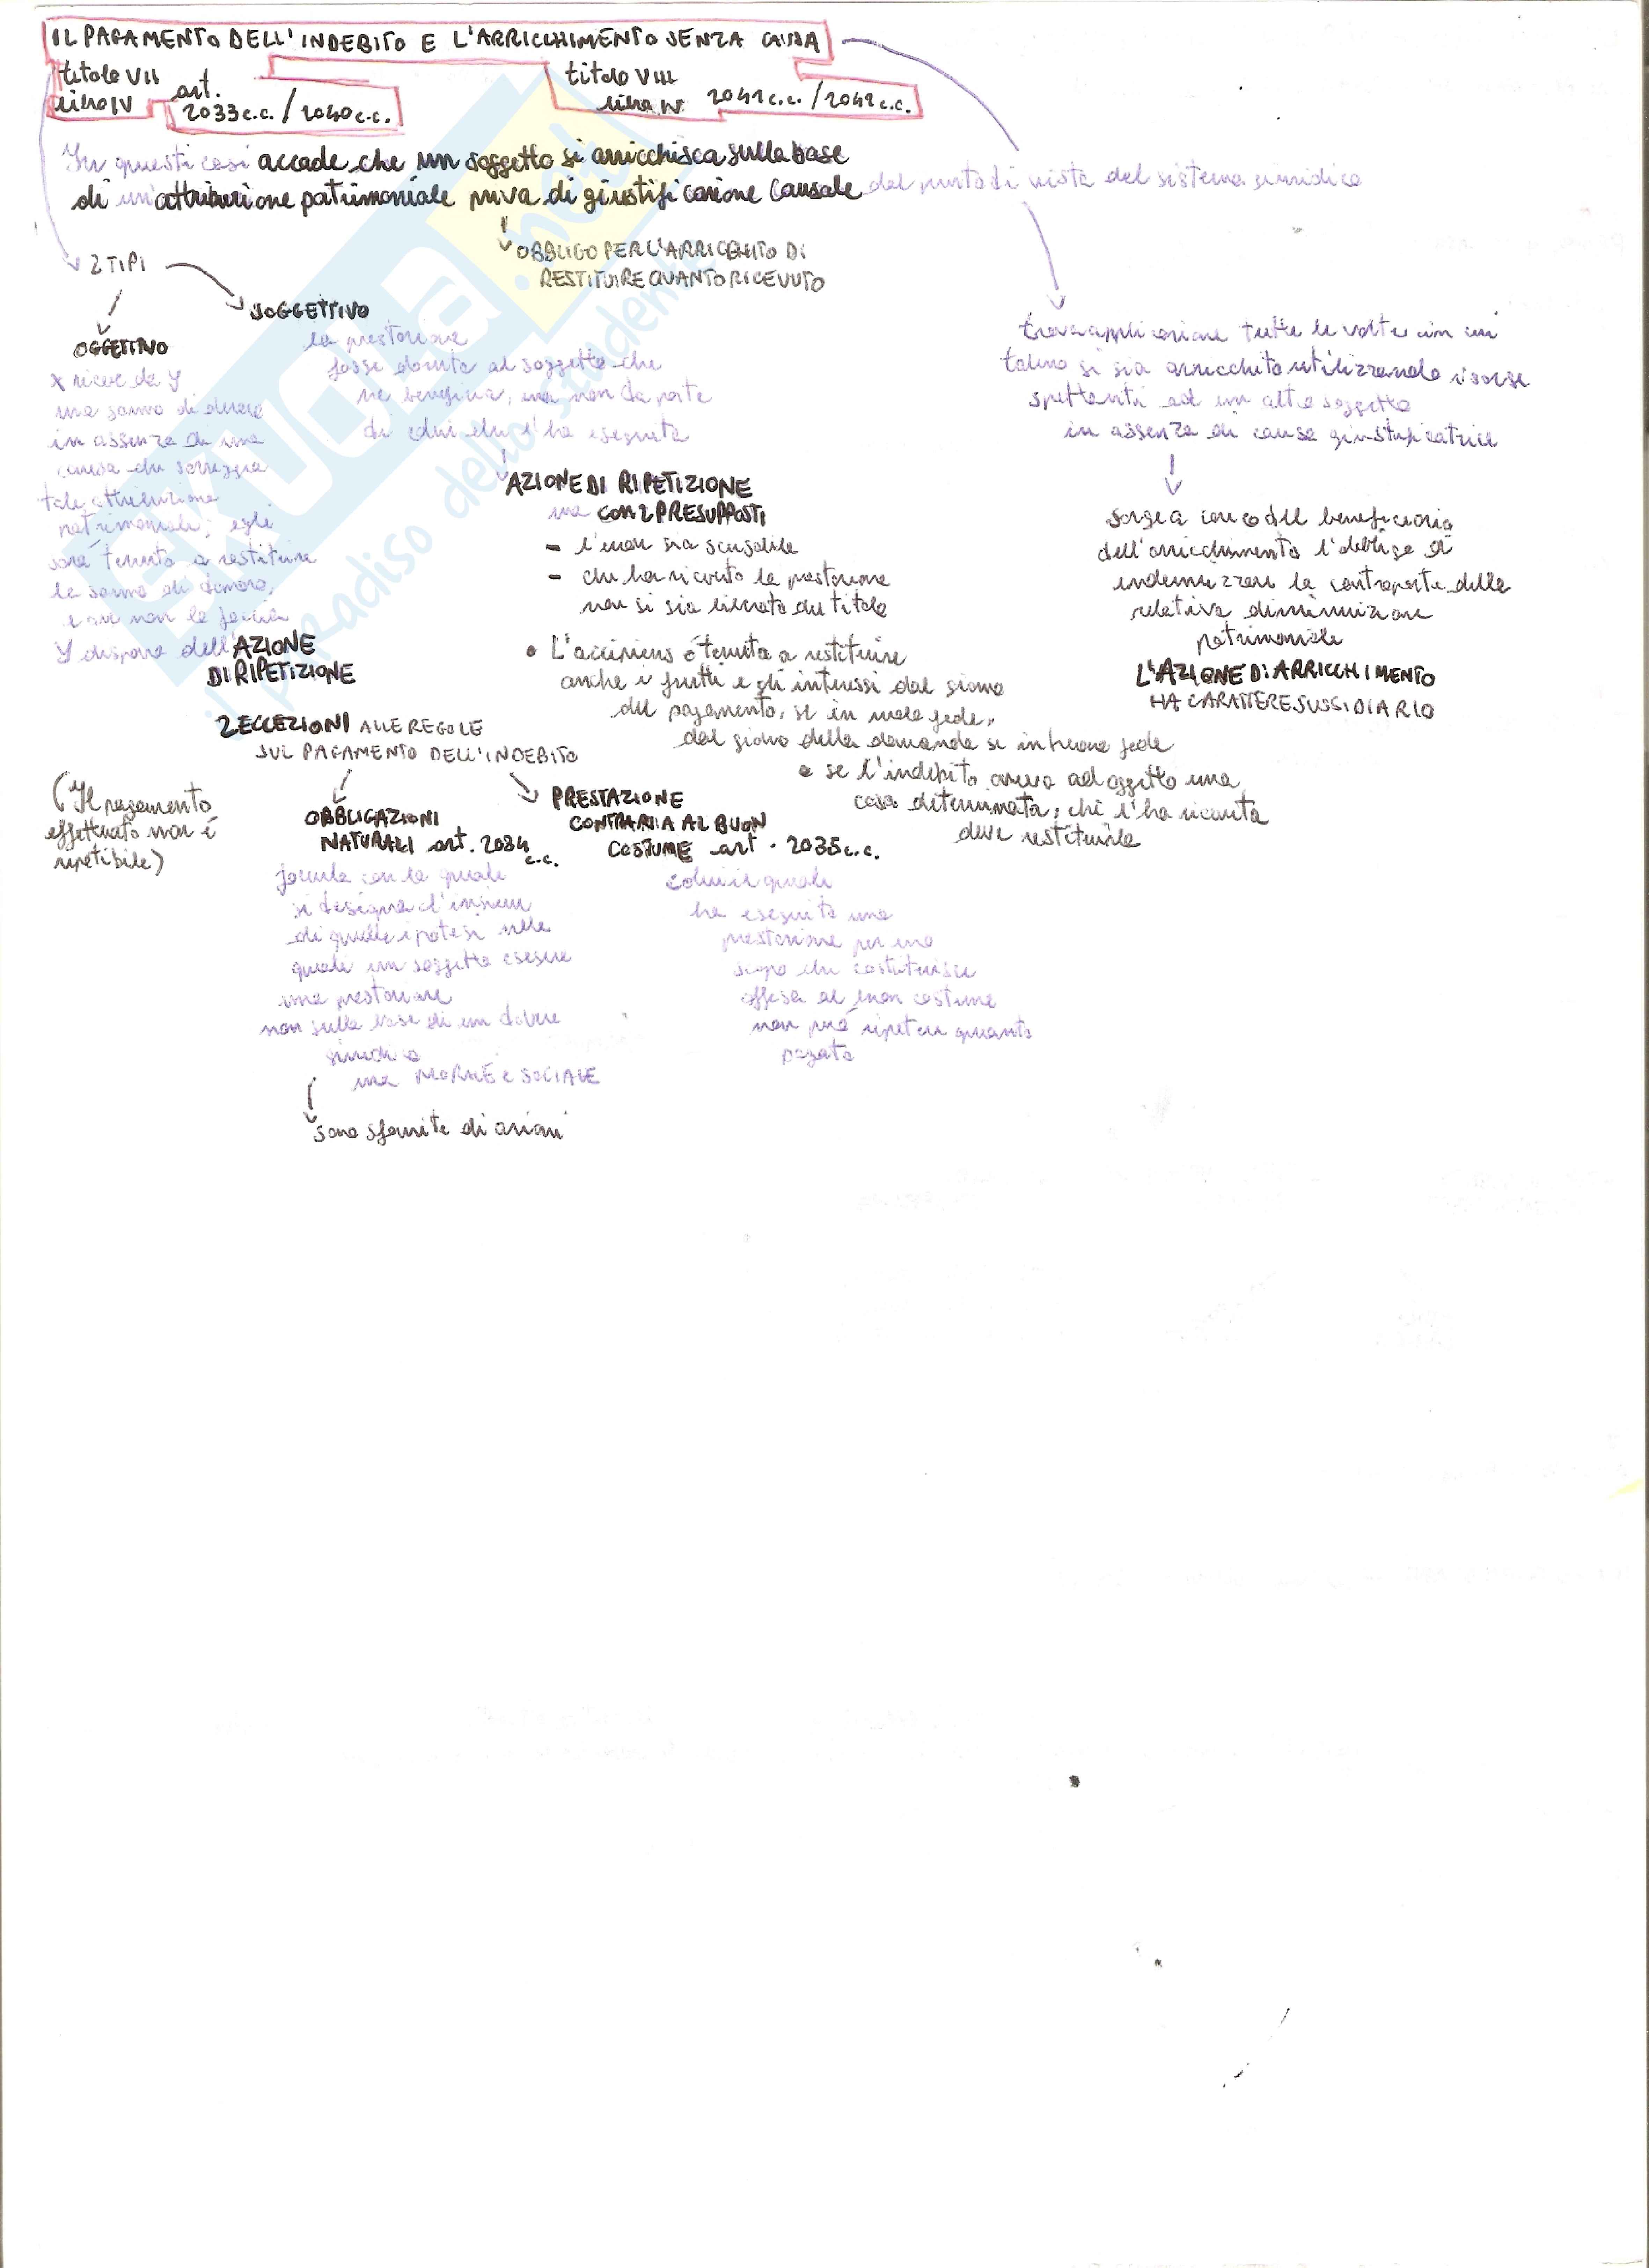 IL PAGAMENTO DELL'INDEBITO E L'ARRICCHIMENTO SENZA CAUSA
titolo VII
libro IV
art.
2033 c.c. / 2040 c.c.
titolo VIII
libro IV
2041 c.c. / 2042 c.c.
In questi casi accade che un soggetto si arricchisca sulla base
di un'attribuzione patrimoniale priva di giustificazione causale dal punto di vista del sistema giuridico
OBBLIGO PER L'ARRICCHITO DI
RESTITUIRE QUANTO RICEVUTO
2 TIPI
OGGETTIVO
X riceve da Y
una somma di denaro
in assenza di una
causa che sorregga
tale attribuzione
patrimoniale; egli
sarà tenuto a restituire
la somma di denaro,
e ove non lo faccia
Y dispone dell'AZIONE
DI RIPETIZIONE
SOGGETTIVO
la prestazione
fosse dovuta al soggetto che
ne beneficia, ma non da parte
di colui che l'ha eseguita
AZIONE DI RIPETIZIONE
ma CON 2 PRESUPPOSTI
- l'error sia scusabile
- chi ha ricevuto la prestazione
non si sia liberato del titolo
• L'accipiens è tenuto a restituire
anche i frutti e gli interessi dal giorno
del pagamento, se in mala fede,
dal giorno della domanda se in buona fede
• se l'indebito aveva ad oggetto una
cosa determinata, chi l'ha ricevuta
deve restituirla
trova applicazione tutte le volte in cui
taluno si sia arricchito utilizzando risorse
spettanti ad un altro soggetto
in assenza di causa giustificatrice
sorge a carico del beneficiario
dell'arricchimento l'obbligo di
indennizzare la controparte della
relativa diminuzione
patrimoniale
L'AZIONE DI ARRICCHIMENTO
HA CARATTERE SUSSIDIARIO
2 ECCEZIONI ALLE REGOLE
SUL PAGAMENTO DELL'INDEBITO
(Il pagamento
effettuato non è
ripetibile)
OBBLIGAZIONI
NATURALI art. 2034
c.c.
formula con la quale
si designa l'insieme
di quelle ipotesi nelle
quali un soggetto esegue
una prestazione
non sulla base di un dovere
giuridico
ma MORALE e SOCIALE
sono sfornite di azioni
PRESTAZIONE
CONTRARIA AL BUON
COSTUME art. 2035 c.c.
colui il quale
ha eseguito una
prestazione per uno
scopo che costituisce
offesa al buon costume
non può ripetere quanto
pagato
SKUOLA.net
il paradiso dello studente